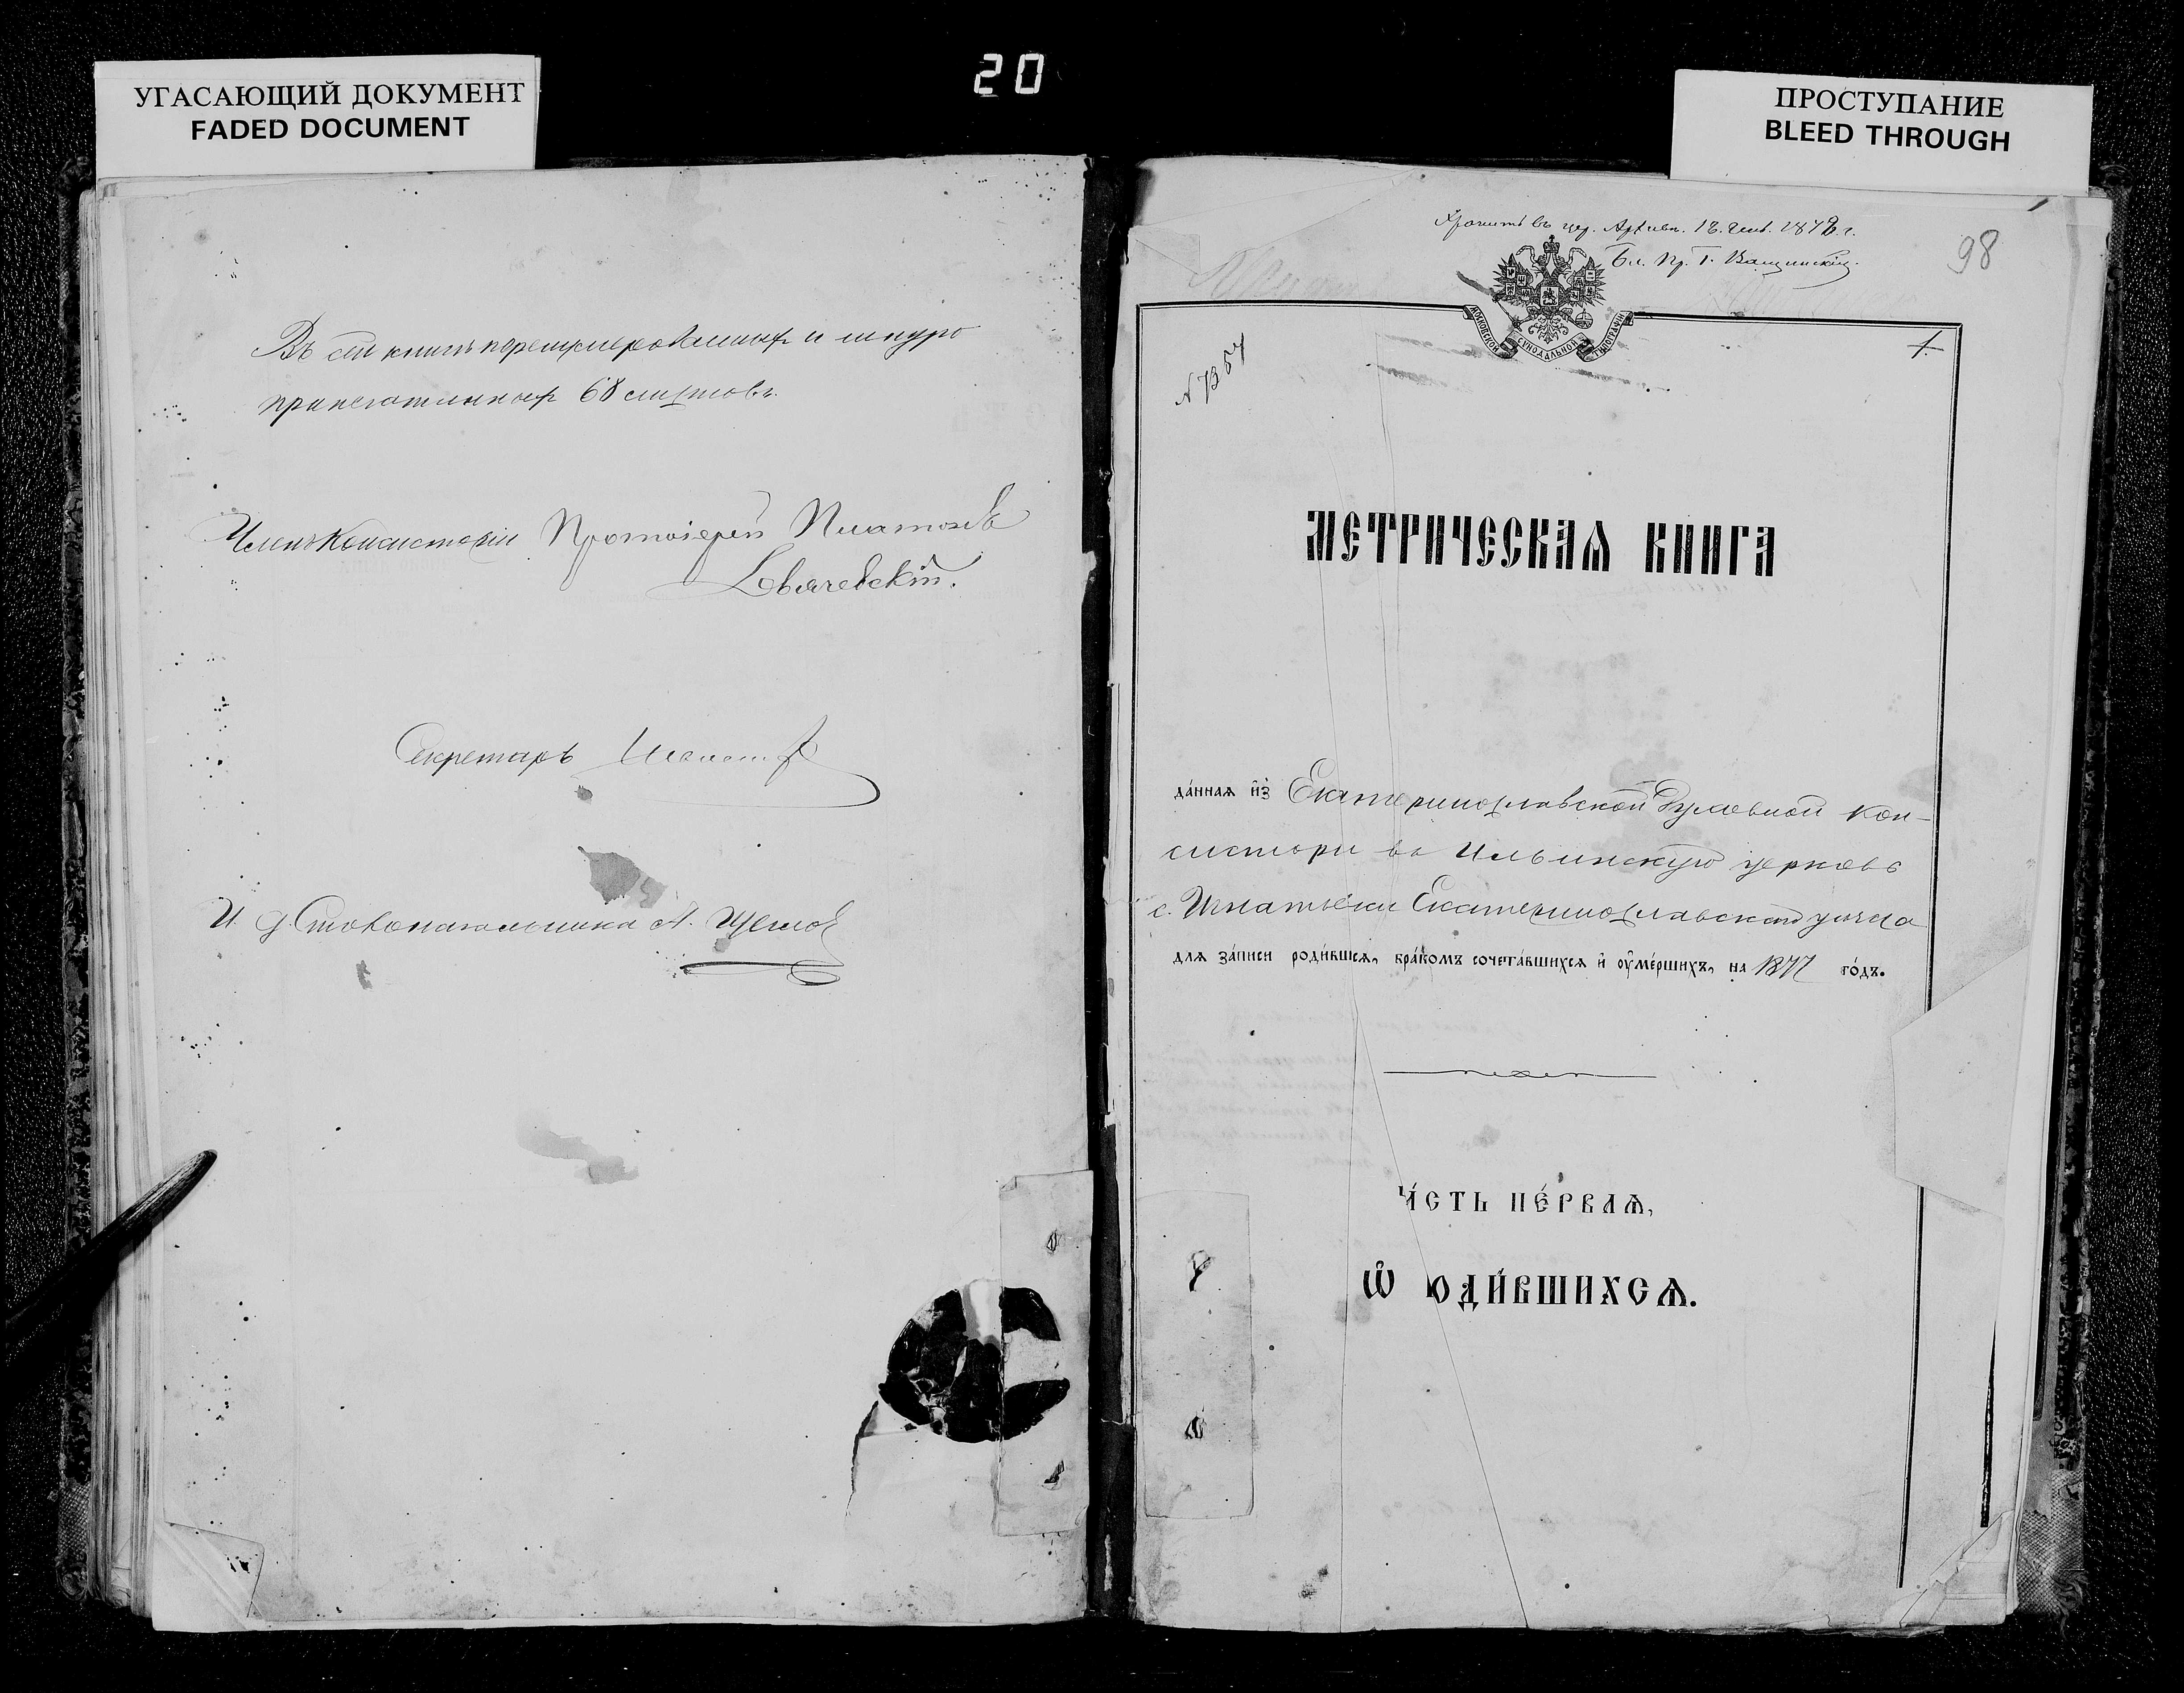 20
УГАСАЮЩИЙ ДОКУМЕНТ
FADED DOCUMENT
ПРОСТУПАНИЕ
BLEED THROUGH
Въ сей книгѣ перенумерованныхъ и шнуро
припечатанныхъ 68 листовъ.
Членъ Консисторіи Протоіерей Платонъ
Секретарь
И. д. Столоначальника А.
Хранить въ цер. Архивѣ. 18. Генв. 1878. г.
Бл. Пр. Г.
98
МОСКОВСКОЙ СѴНОДАЛЬНОЙ ТИПОГРАФІИ
1.
N 7357
МЕТРИЧЕСКАѦ КНИГА
да́ннаѧ и҆з̾ Екатеринославской Духовной Кон-
систоріи въ Ильинскую церковь
с. Игнатьевки Екатеринославскаго уѣзда
длѧ за́писи роди́вшисѧ, бра́комъ сочета́вшихсѧ и҆ ᲂу҆ме́ршихъ, на 1877 го́дъ.
ЧА́СТЬ ПЕ́РВАѦ,
Ѽ РОДИ́ВШИХСѦ.